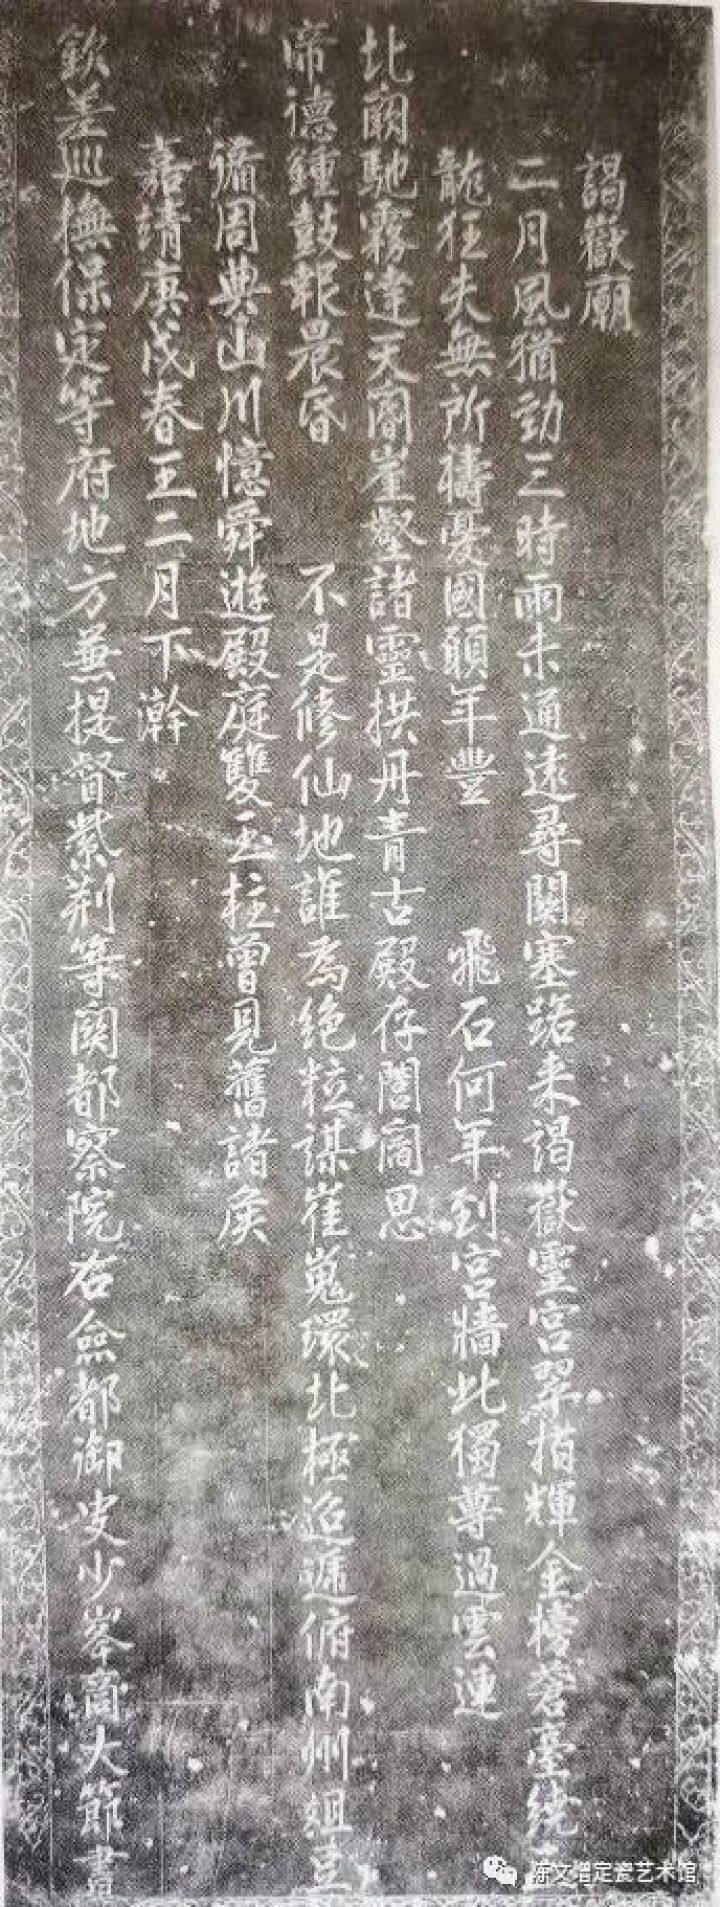 謁嶽廟
二月風猶勁三時雨未通遠尋關塞路来謁嶽靈宮翠栢輝金榜蒼臺繞
龍狂夫無所禱憂國願年豐 飛石何年到宮牆此獨尊過雲連
北廟馳霧達天閽崖壑諸靈拱丹青古殿存闇閽思
帝德鍾鼓報晨昏 不是修仙地誰為絶粒謀崔嵬環北極迢遞俯南州俎豆
備周典山川憶舜遊殿庭雙玉柱曾見舊諸侯
嘉靖庚戌春王二月下澣
欽差巡撫保定等府地方兼提督紫荆等関都察院右僉都御史少峯商大節書
陈文增定瓷艺术馆